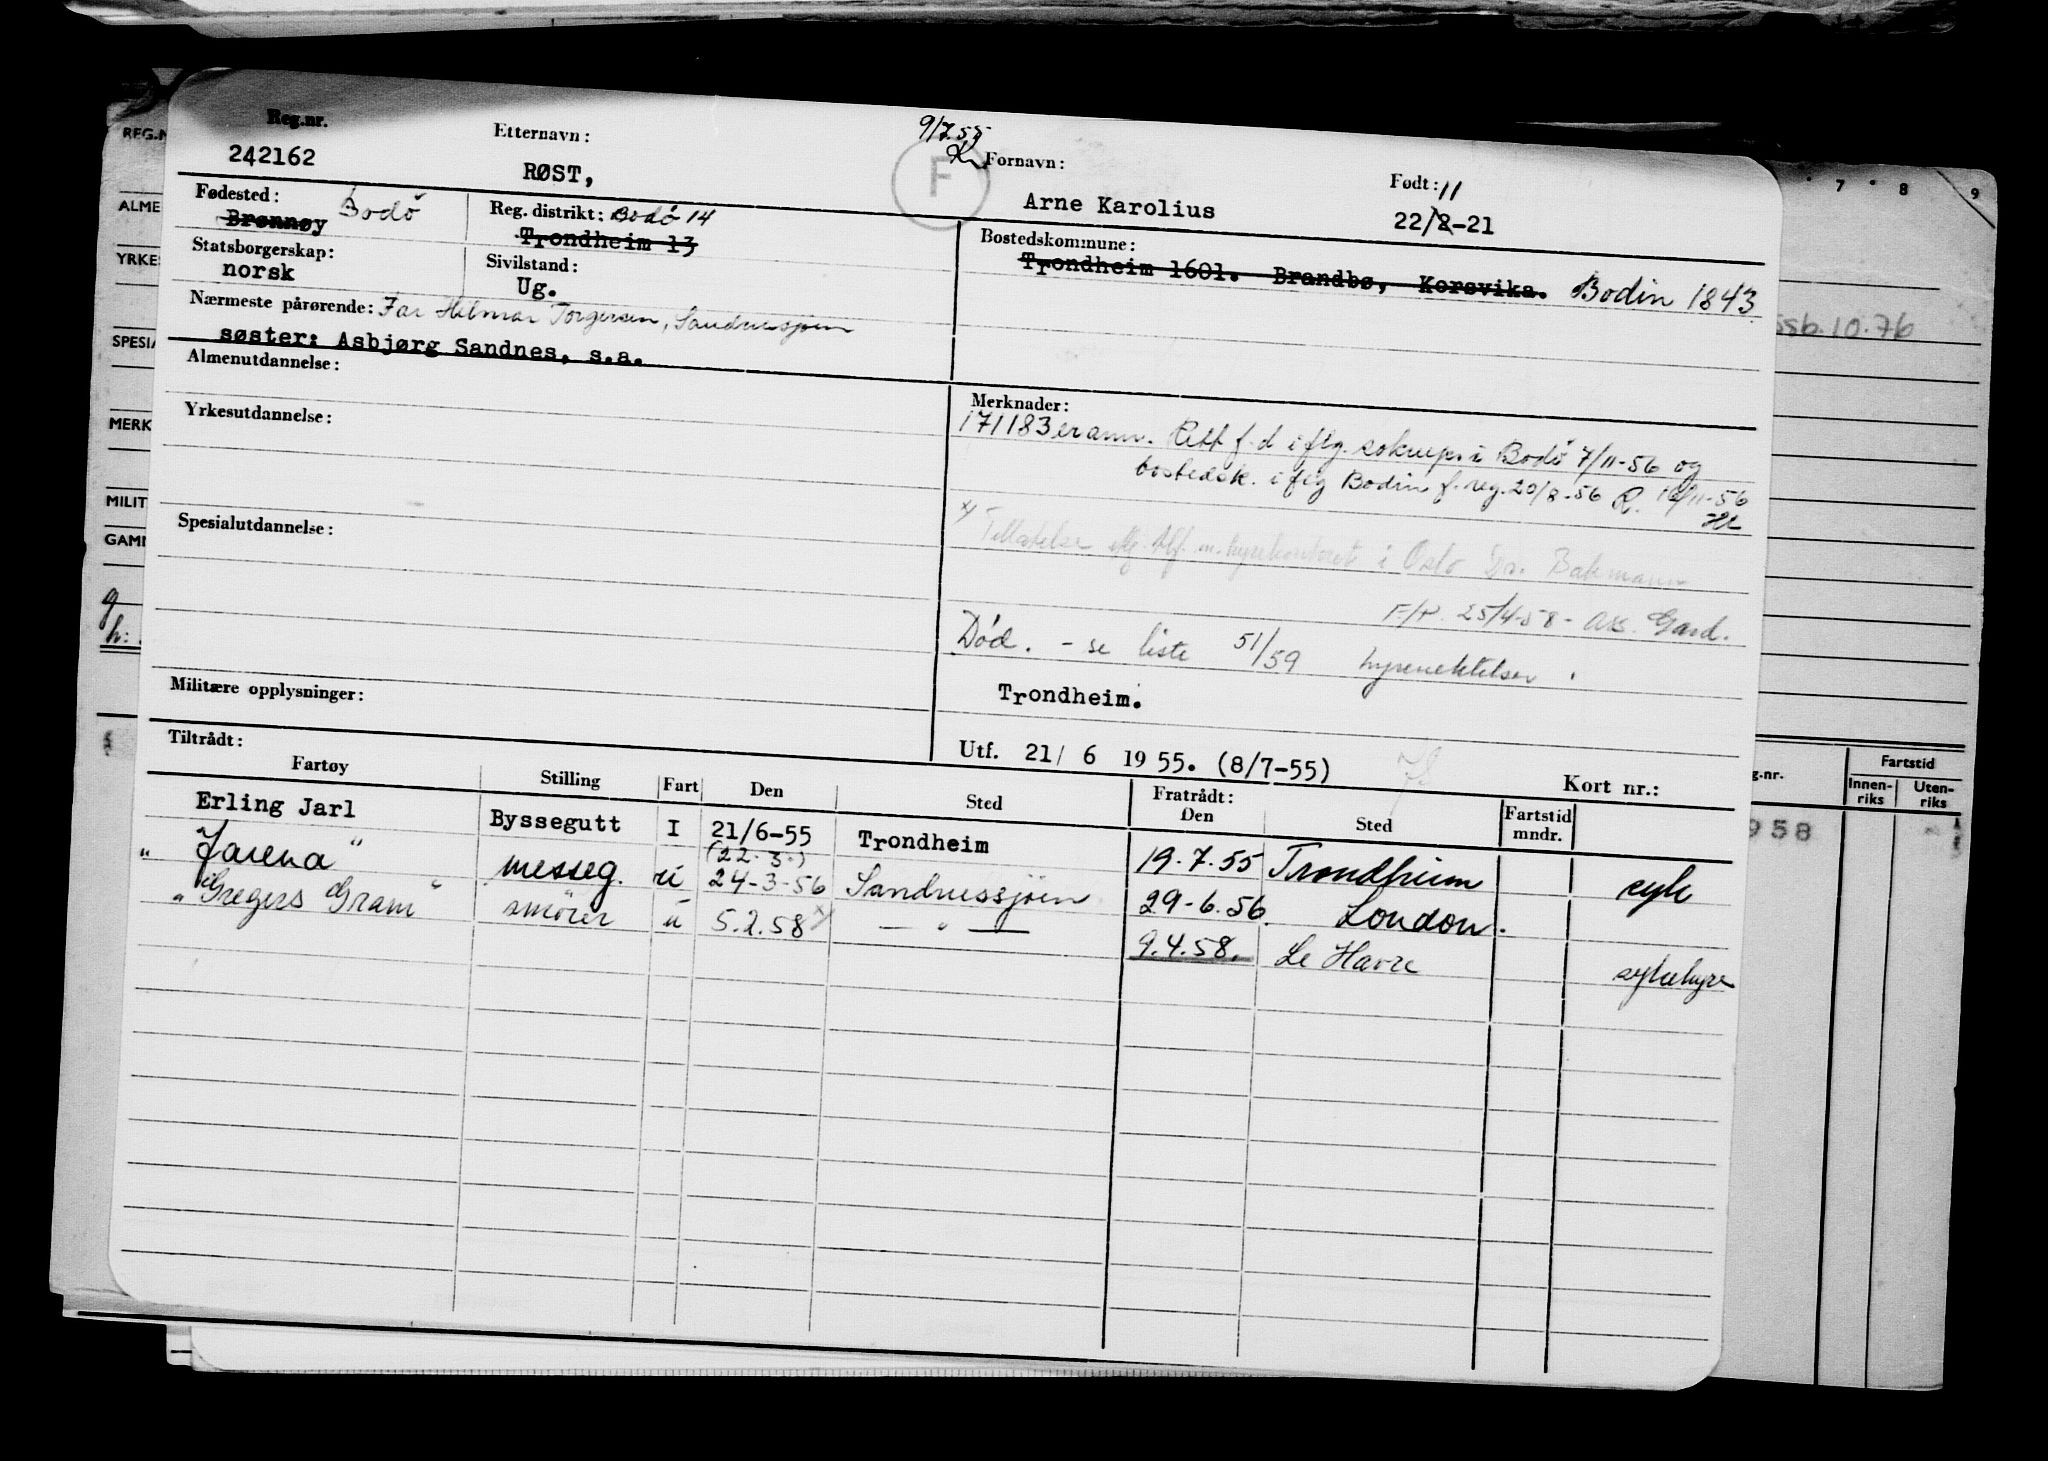 Reg.nr.
242162
Etternavn:
RØST,
9/7.55
F
Fornavn:
Arne Karolius
Født: 11
22/8-21
Fødested: Bodö
Brønnøy
Reg. distrikt: Bodö 14
Trondheim 13
Bostedskommune:
Trondheim 1601. Brandbø, Korsvika. Bodin 1843
Statsborgerskap:
norsk
Sivilstand:
Ug.
Nærmeste pårørende: Far Hilmar Torgersen, Sandnessjøen
søster: Asbjørg Sandnes, s.a.
Almenutdannelse:
Yrkesutdannelse:
Spesialutdannelse:
Militære opplysninger:
Merknader:
171183 er ann. Rett f.d iflg. sokneps i Bodö 7/11-56 og
bostedsk. iflg Bodin f.reg. 20/8-56 R. 16/11-56
x) Tillatelse iflg. tlf. m. hyrekontoret i Oslo Bakmann
25/4-58 - ass. Gard.
Död. - se liste 51/59 hyrenektelser.
Trondheim.
Utf. 21/ 6 1955. (8/7-55)
Kort nr.:
Tiltrådt:
Fartøy Stilling Fart Den Sted Fratrådt: Den Sted Fartstid mndr.
Erling Jarl Byssegutt I 21/6-55 Trondheim 19.7.55 Trondheim syk
(22.3.)
" Jarena " messeg. u 24-3-56 Sandnessjöen 29-6.56 London.
" Gregers Gram " smörer u 5.2.58 x) — " — 9.4.58. Le Havre sykehyre
REG.N
ALME
YRKES
SPESIA
MERK
MILIT
GAMM
7 8 9
ssb.10.76
g.nr.
Fartstid
Innen-riks
Uten-riks
958